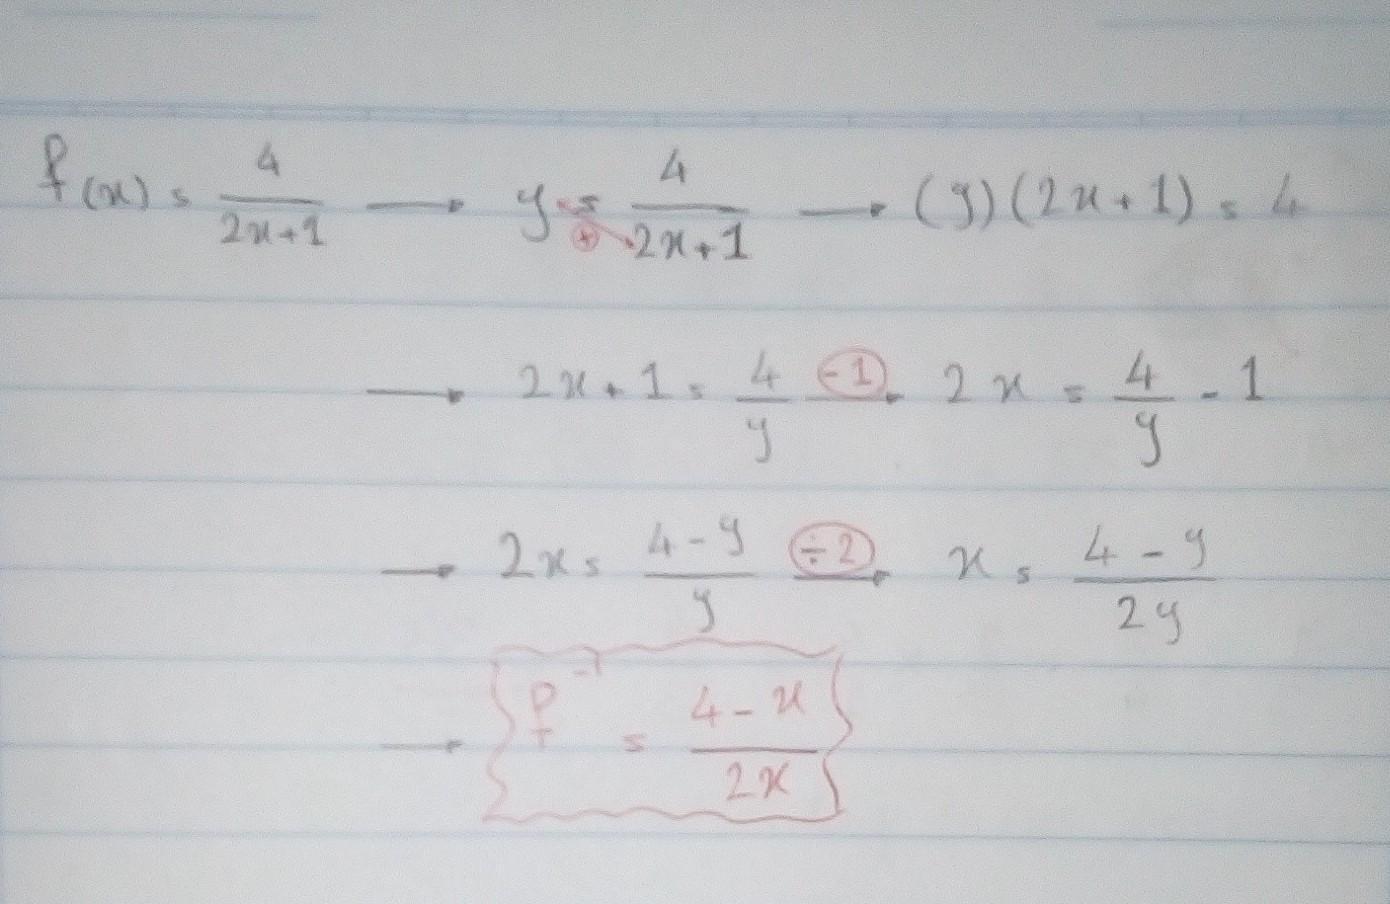 f(x) = 4/(2x+1) → y = 4/(2x+1) → (y)(2x+1) = 4
→ 2x+1 = 4/y -1→ 2x = 4/y - 1
→ 2x = (4-y)/y ÷2→ x = (4-y)/(2y)
→ f⁻¹ = (4-x)/(2x)